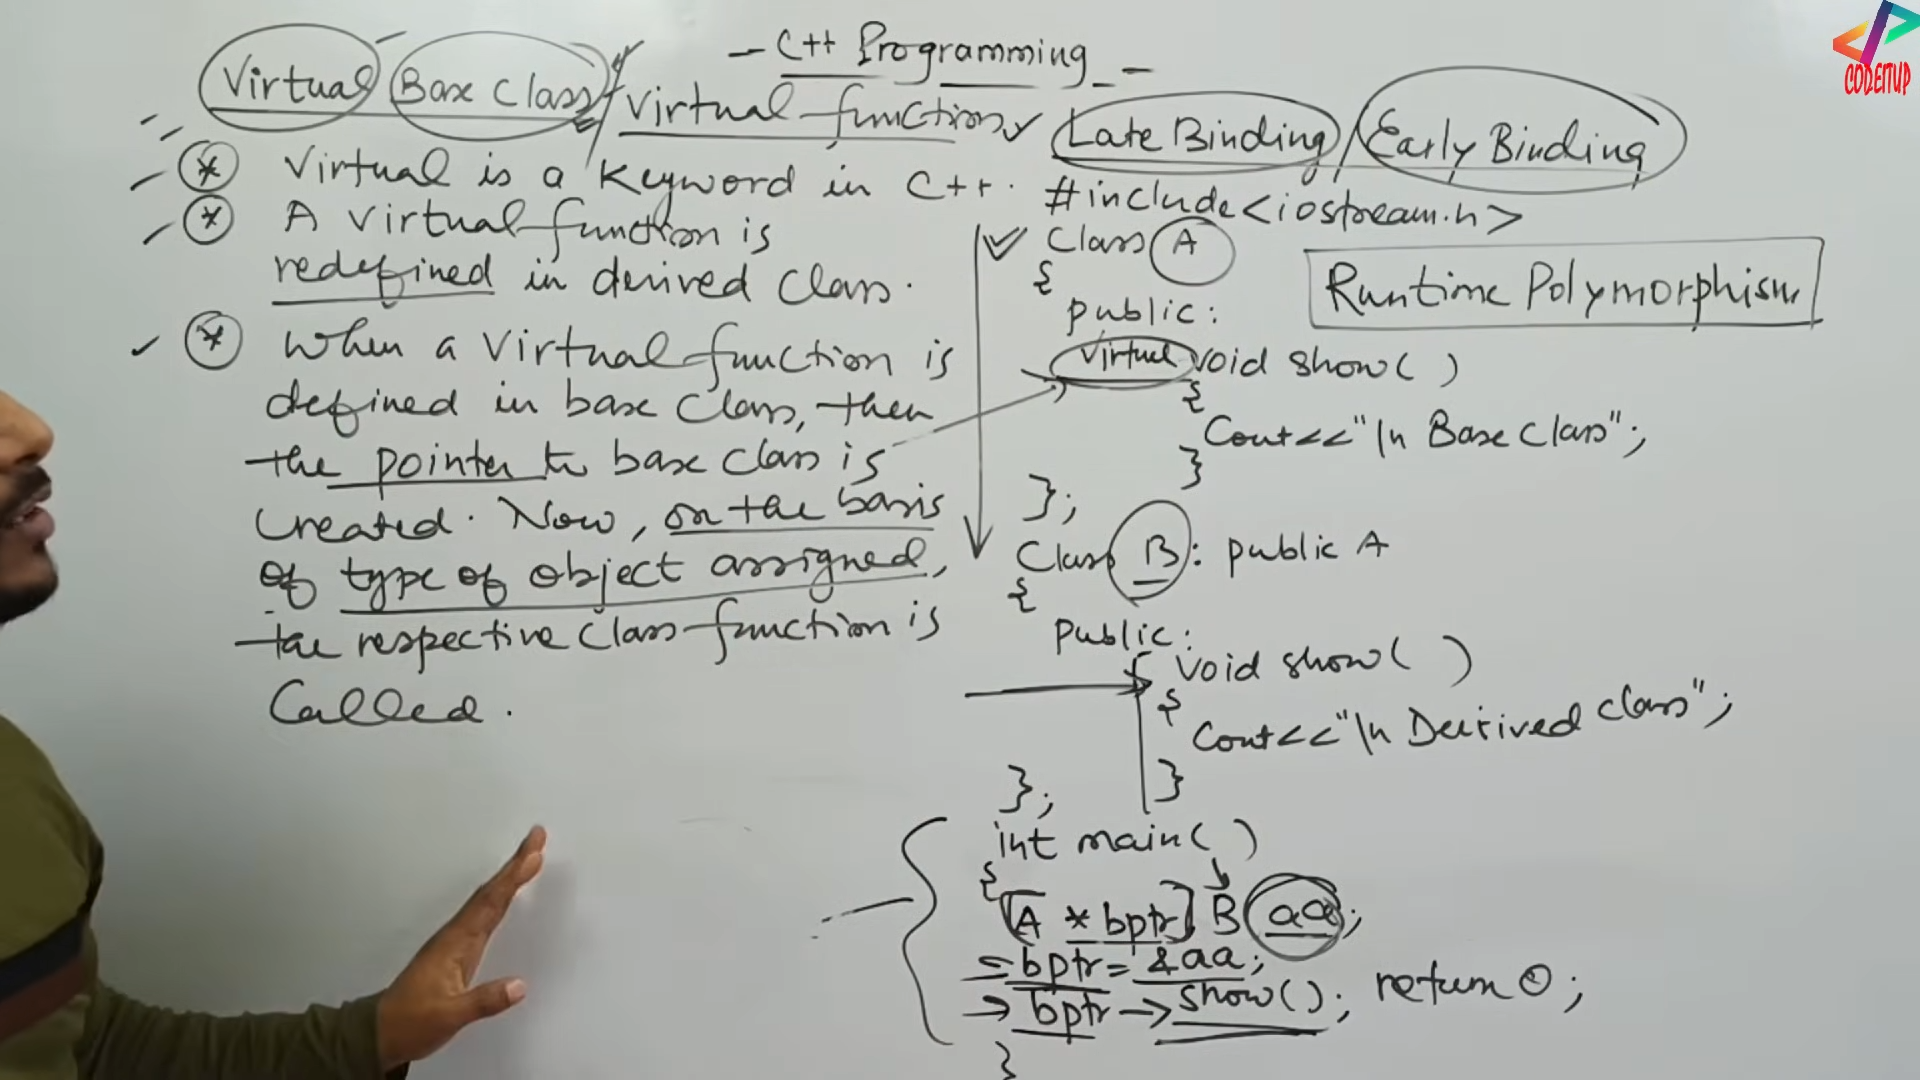 - C++ Programming -
Virtual Base Class / Virtual function
Late Binding / Early Binding
* Virtual is a Keyword in C++.
* A Virtual function is
redefined in derived Class.
* When a Virtual function is
defined in base Class, then
the pointer to base class is
Created. Now, on the basis
of type of object assigned,
the respective Class function is
Called.
#include<iostream.h>
Class A
{
public:
Virtual void show( )
{
Cout<<"\n Base Class";
}
};
Class B : public A
{
Public:
void show( )
{
Cout<<"\n Deirived class";
}
};
int main( )
{
A *bptr; B aa;
bptr = &aa;
bptr -> show(); return 0;
}
Runtime Polymorphism
CODEITUP